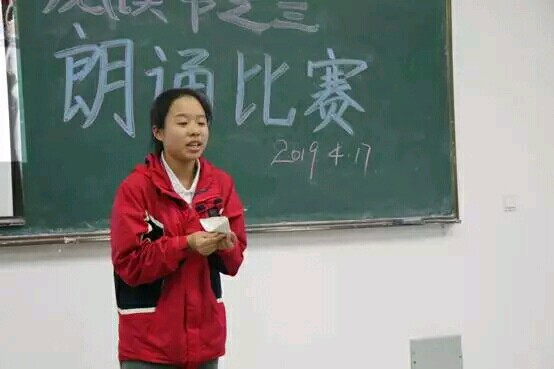 节之三
朗诵比赛
2019 4.17